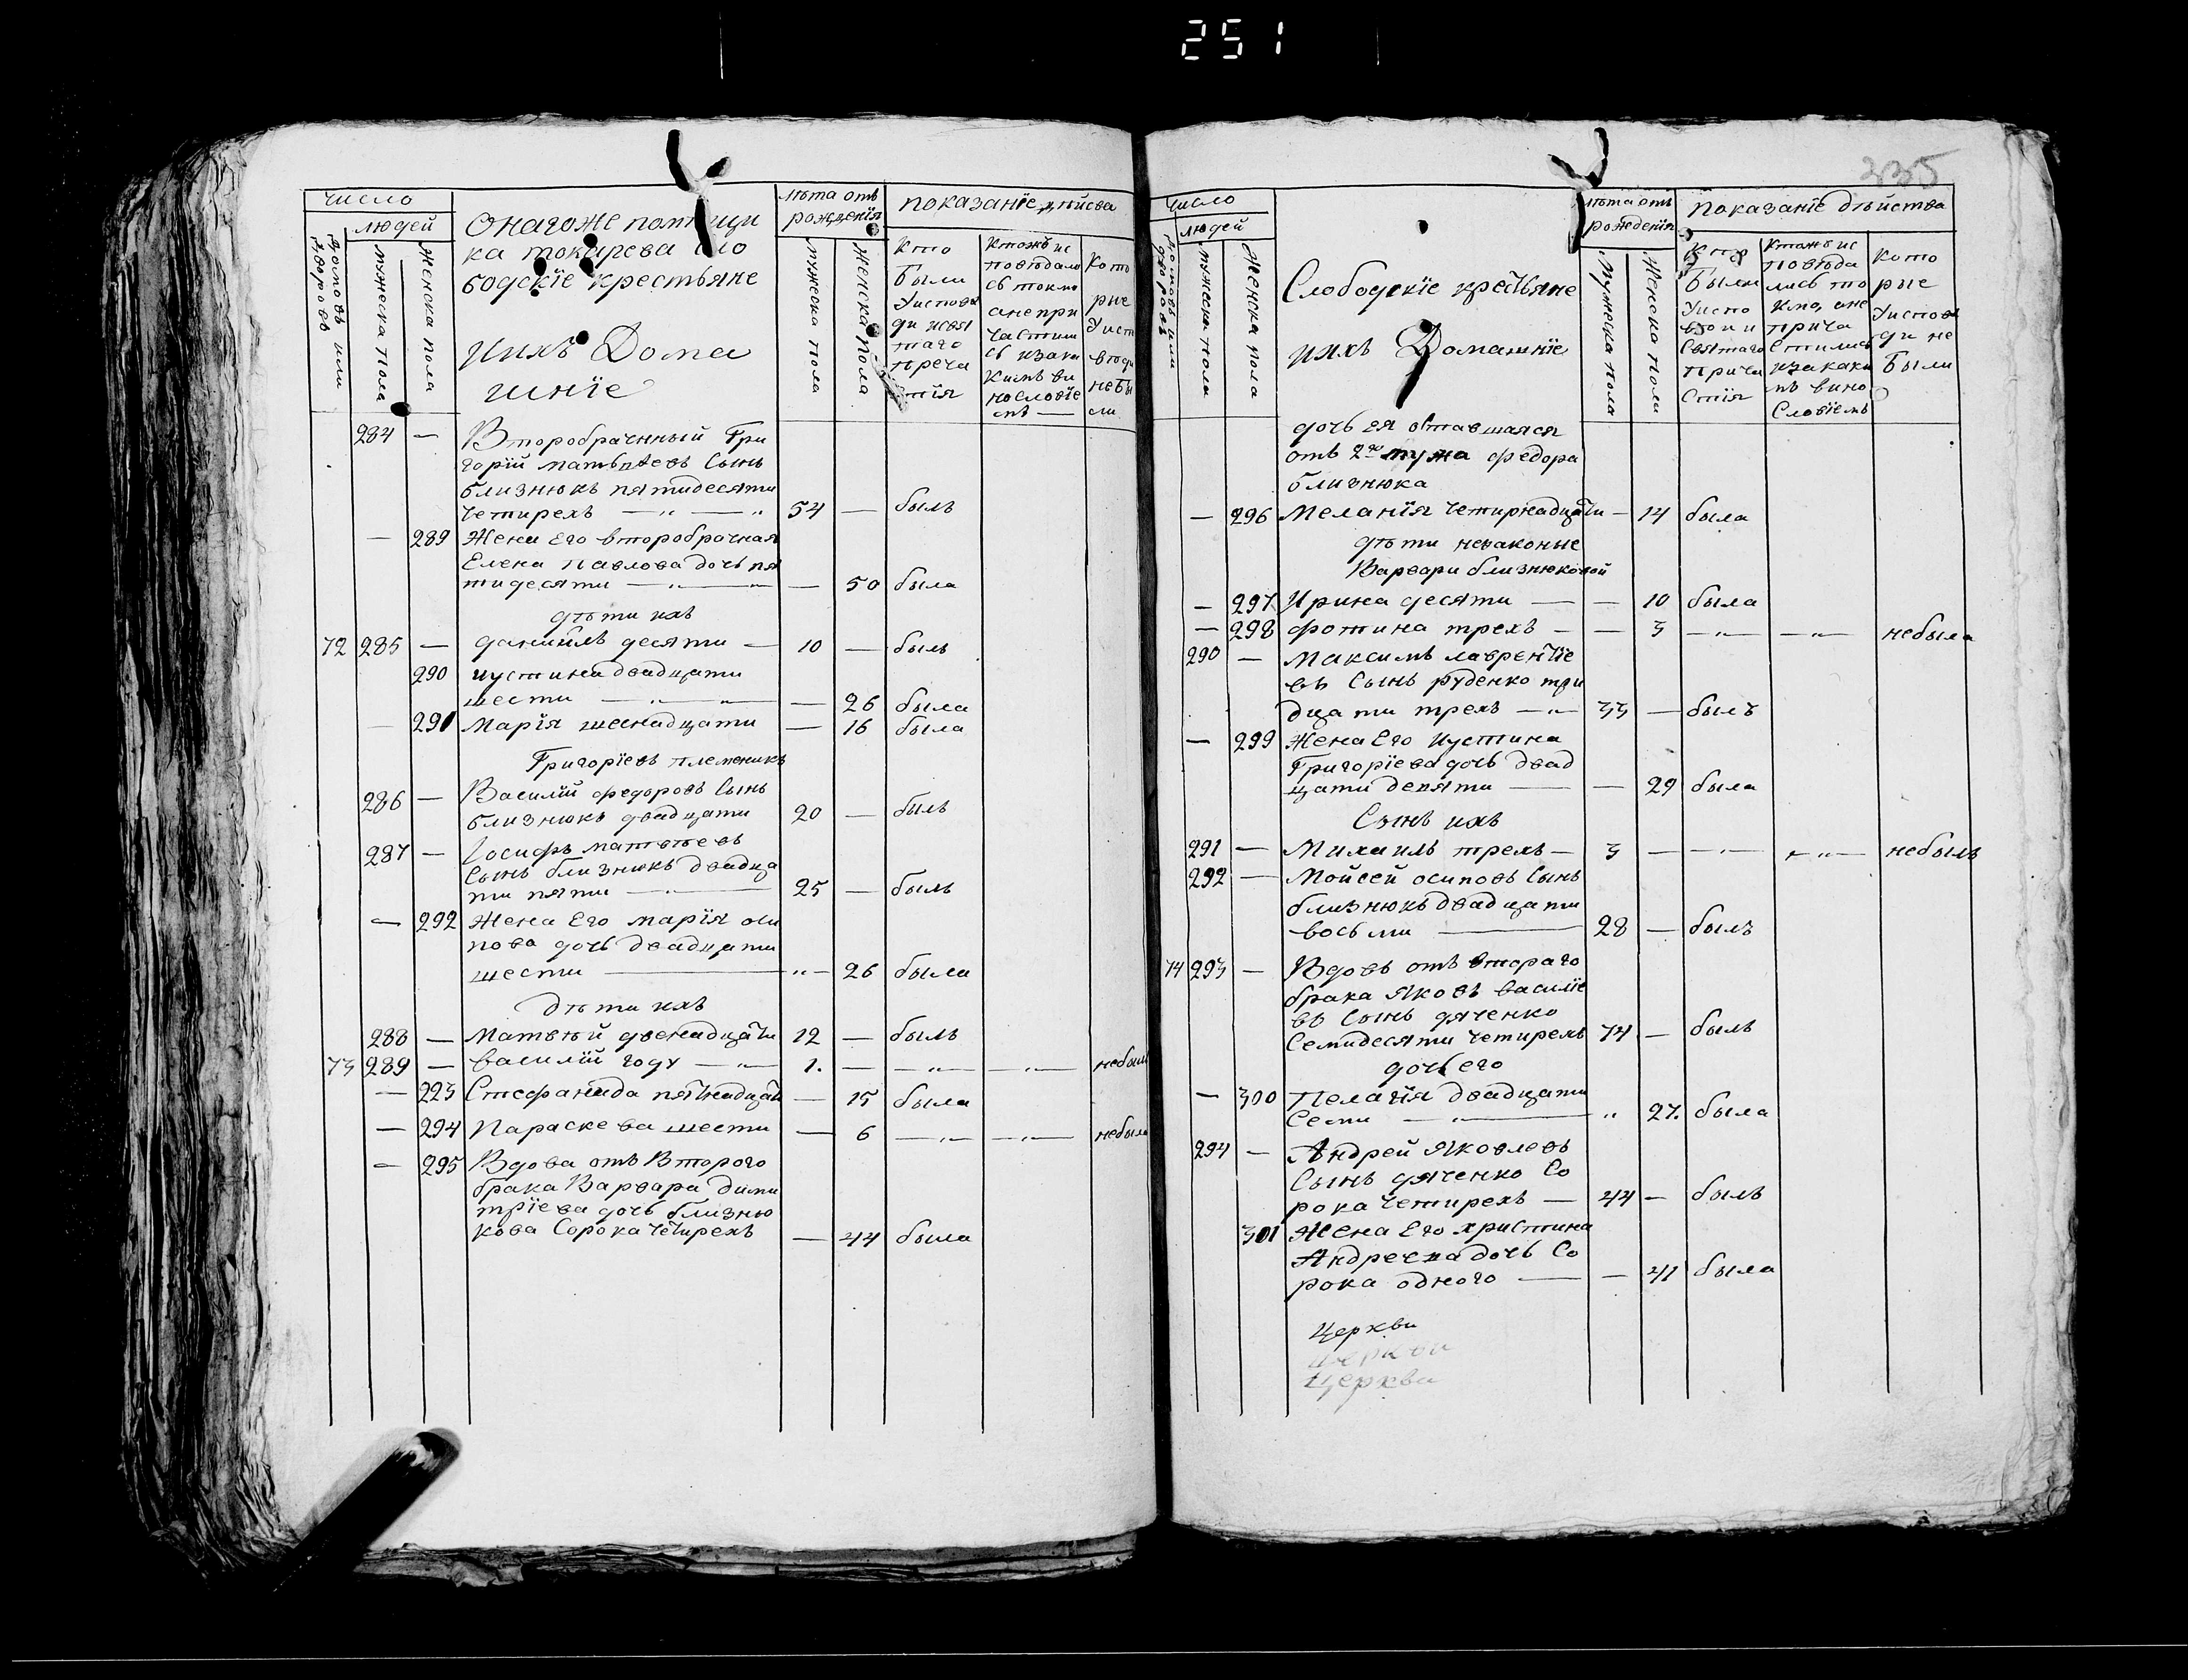 251
335
число
людей
домовъ или
дворовъ
мужеска пола
женска пола
онагоже помѣщи
ка токарева сло
бодскіе крестьяне
ихъ Дома
шніе
лѣта отъ
рожденія
мужеска пола
женска пола
показаніе дѣйсва
Кто
были
Уиспове
ди исвя
таго
прича
стія
Ктожъ ис
повѣдалис
сь токмо
анепри
частили
сь изаки
кимъ ви
нословіе
мъ —
Кото
рые
Уисп
вѣди
небы
ли
284 — Второбрачный Гри
горій матвѣевъ Сынъ
близнюкъ пятидесяти
Четирехъ — „ — „ 54 — былъ
— 289 Жена Его второбрачная
Елена павлова дочь пя
тидесяти — „ — — 50 была
дѣти ихъ
72 285 — даниилъ десяти — 10 — былъ
290 иустина двадцати
шести — „ — — 26 была
— 291 Марія шеснадцати — 16 была
Григоріевъ племеникъ
286 — Василій федоровъ Сынъ
близнюкъ двадцати 20 — былъ
287 — Іосифъ матвѣевъ
Сынъ близнюкъ двадца
ти пяти — „ — 25 — былъ
— 292 Жена Его марія оси
пова дочь двадцати
шести — „ — 26 была
Дѣти ихъ
288 — матвѣй двенадцати 12 — былъ
73 289 — василій году — „ — 1. — — „ — — „ — небылъ
— 223 Стефанида пятнадцати — 15 была
— 294 Параскева шести — 6 — „ — — „ — небыла
— 295 Вдова отъ Второго
брака Варвара дими
тріева дочь близню
кова Сорока Четирехъ — 44 была
число
людей
домовъ или
дворовъ
мужеска пола
Женска пола
Слободскіе крестьяне
ихъ Домашніе
лѣта отъ
рожденія
Мужеска пола
Женска пола
показаніе дѣйства
Кто
Были
Уиспо
вѣди и
Святаго
Прича
Стія
Ктожъ ис
повѣда
лись то
кмо, ане
прича
стились
изакаки
мъ вино
Словіемъ
Кото
рые
Уиспове
ди не
Были
дочь ея оставшаяся
отъ 2го мужа федора
близнюка
— 296 Меланія Четирнадцати — 14 была
дѣти незаконые
Варвари близнюковой
— 297. Ирина десяти — — 10 была
— 298 фотина трехъ — — 3 — „ — — „ — небыла
290 — Максимъ лаврентіе
въ Сынъ руденко три
дцати трехъ — „ — 33 — былъ
— 299 Жена Его Иустина
Григоріева дочь двад
цати девяти — — 29 была
Сынъ ихъ
291 — Михаилъ трехъ — 3 — — „ — — „ — небылъ
292 — Мойсей осиповъ Сынъ
близнюкъ двадцати
восьми — 28 — былъ
74 293 — Вдовъ отъ втораго
брака Яковъ василіе
въ Сынъ дяченко
Семидесяти четирехъ 74 — былъ
дочь его
— 300 Пелагія двадцати
Семи — „ — „ 27. была
294 — Андрей Яковлевъ
Сынъ дяченко Со
рока Четирехъ — 44 — былъ
301 Жена Его христина
Андреева дочь Со
рока одного — — 41 была
Церкви
Церкви
Церкви